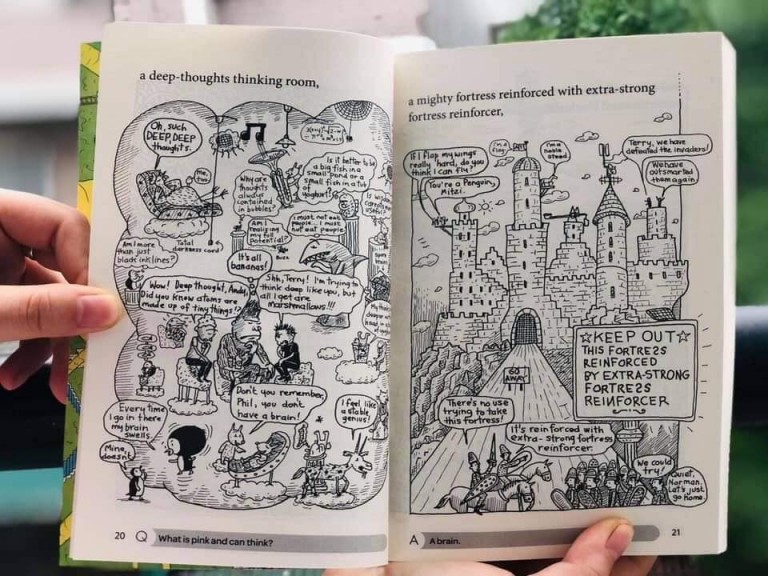 a deep-thoughts thinking room,
Oh, such
DEEP, DEEP
thoughts.
Me,
too.
Why are
thoughts
always
contained
in bubbles?
Is it better to be
a big fish in a
small pond or a
small fish in a tub
of
Am I
realising
my full
potential?
I must not eat
people... I must
not eat people.
Am I more
than just
black ink lines?
Total
darkness cord
It's all
bananas!
Wow! Deep thought, Andy.
Did you know atoms are
made up of tiny things!?
Shh, Terry! I'm trying to
think deep like you, but
all I get are
marshmallows!!!
Don't you remember,
Phil, you don't
have a brain!
I feel like
a stable
genius!
Every time
I go in there
my brain
swells.
Mine
doesn't.
20 Q What is pink and can think?
a mighty fortress reinforced with extra-strong
fortress reinforcer,
If I flap my wings
really hard, do you
think I can fly?
You're a Penguin,
Mitzi.
I'm a
flag.
I'm a
noble
steed.
Terry, we have
defeated the invaders!
We have
outsmarted
them again.
☆KEEP OUT☆
THIS FORTRE2S
REINFORCED
BY EXTRA-STRONG
FORTRE2S
REINFORCER
GO
AWAY
There's no use
trying to take
this fortress!
It's reinforced with
extra-strong fortress
reinforcer.
We could
try.
Quiet,
Norman.
Let's just
go home.
A A brain.
21